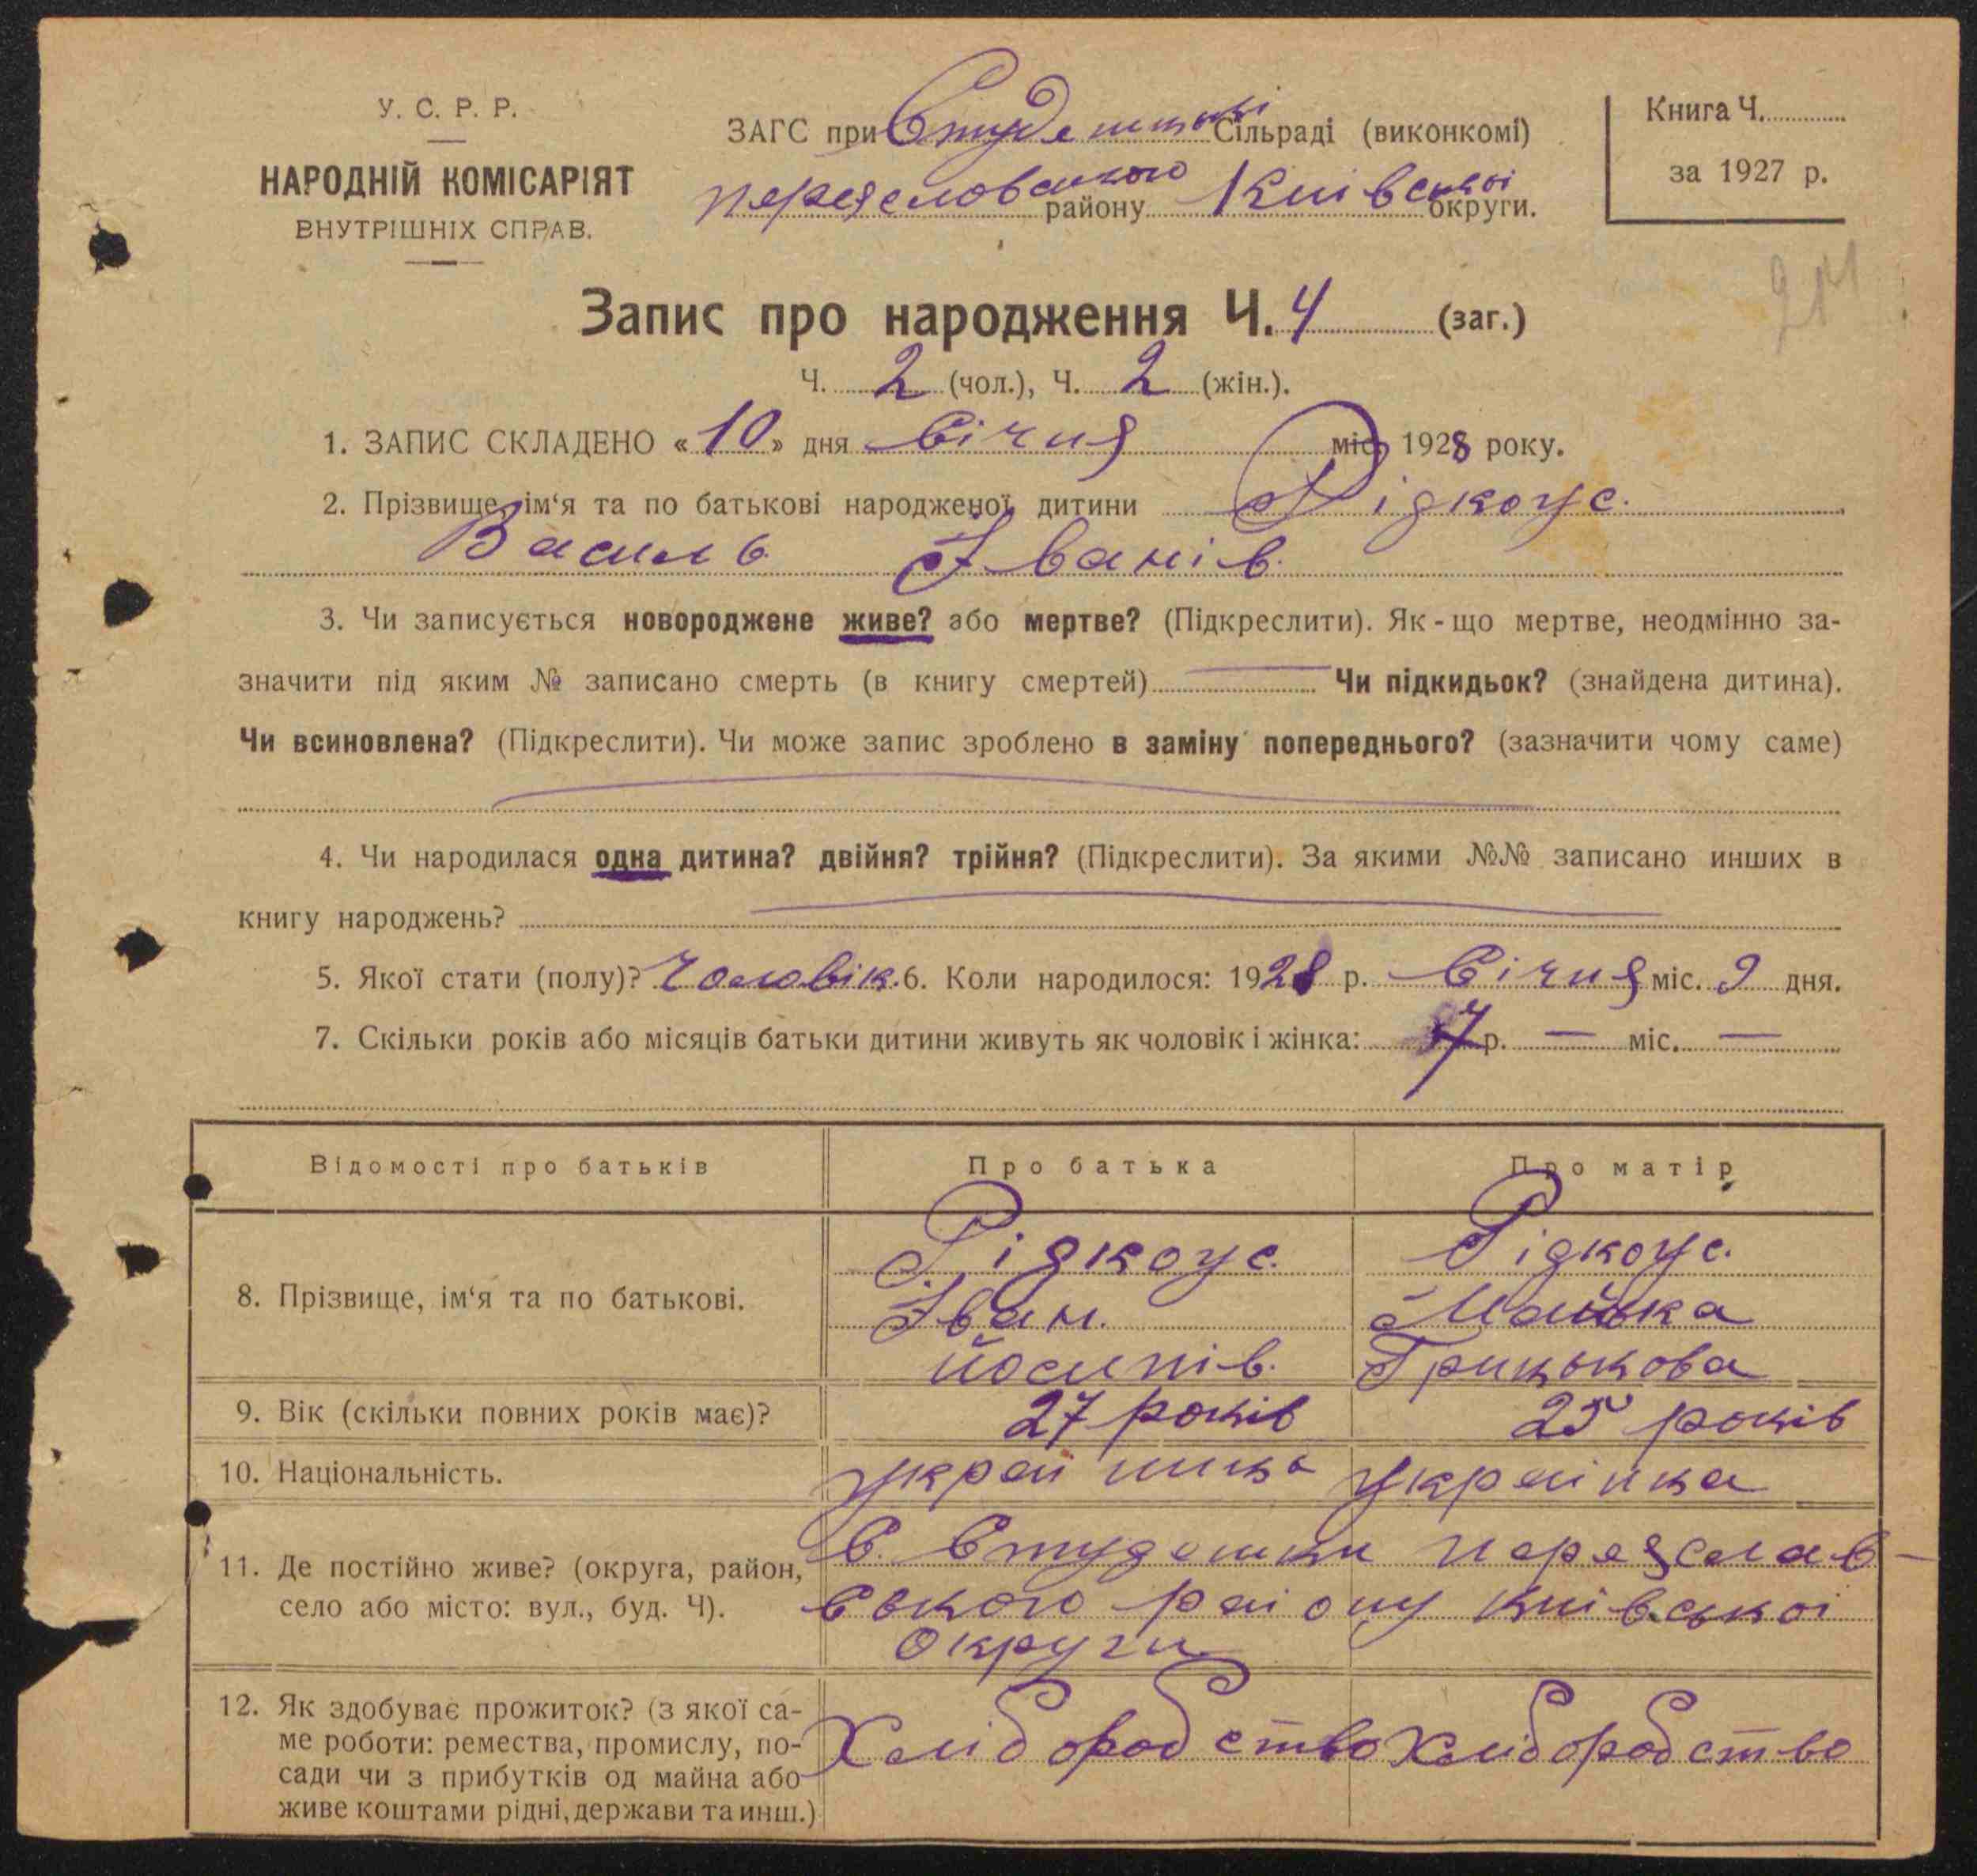 У. С. Р. Р.
НАРОДНІЙ КОМІСАРІЯТ
ВНУТРІШНІХ СПРАВ.
ЗАГС при Студенській Сільраді (виконкомі)
переяславського району Київської округи.
Книга Ч.
за 1927 р.
Запис про народження Ч. 4 (заг.)
Ч. 2 (чол.), Ч. 2 (жін.).
1. ЗАПИС СКЛАДЕНО «10» дня Січня міс. 1928 року.
2. Прізвище, ім‘я та по батькові народженої дитини Рідкоус.
Василь Іванів.
3. Чи записується новороджене живе? або мертве? (Підкреслити). Як-що мертве, неодмінно за-
значити під яким № записано смерть (в книгу смертей) Чи підкидьок? (знайдена дитина).
Чи всиновлена? (Підкреслити). Чи може запис зроблено в заміну попереднього? (зазначити чому саме)
4. Чи народилася одна дитина? двійня? трійня? (Підкреслити). За якими №№ записано инших в
книгу народжень?
5. Якої стати (полу)? Чоловік. 6. Коли народилося: 1928 р. Січня міс. 9 дня.
7. Скільки років або місяців батьки дитини живуть як чоловік і жінка: 7 р. — міс. —
Відомості про батьків Про батька Про матір
8. Прізвище, ім‘я та по батькові.
Рідкоус. Рідкоус.
Іван.
Йосипів. Грицькова
9. Вік (скільки повних років має)? 27 років 25 років
10. Національність. українець українка
11. Де постійно живе? (округа, район,
село або місто: вул., буд. Ч).
С. Студеники переяслав-
ського району київської
округи
12. Як здобуває прожиток? (з якої са-
ме роботи: ремества, промислу, по-
сади чи з прибутків од майна або
живе коштами рідні, держави та инш.)
Хліборобство Хліборобство